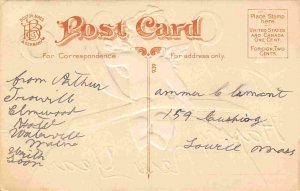 Post Card
For Correspondence
For address only.
Place Stamp
here.
United States
and Canada
One Cent.
Foreign, Two
Cents.
926
from Arthur
Trowell
Elmwood
Hotel
Waterville
Maine
Write
Soon
ammer C Lamont
159 Cushing
Lowell Mass